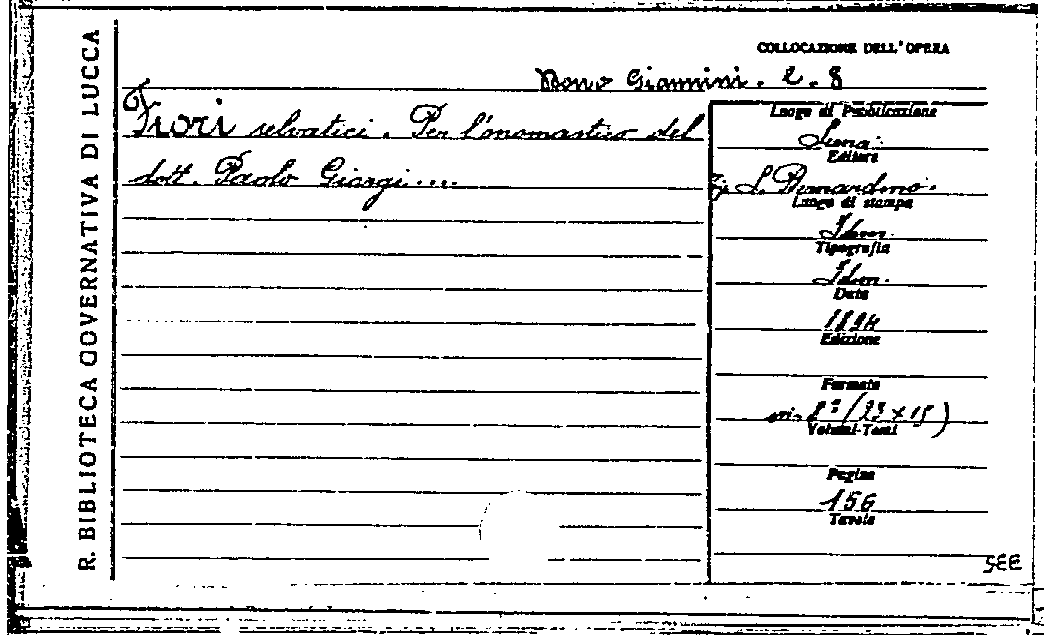 R. BIBLIOTECA GOVERNATIVA DI LUCCA
COLLOCAZIONE DELL'OPERA
Dono Giannini. 2. 8
Fiori selvatici. Per l'onomastico del
dott. Paolo Giorgi....
Luogo di Pubblicazione
Siena.
Editore
Tip. S. Bernardino.
Luogo di stampa
Idem.
Tipografia
Idem.
Data
Edizione
Formato
in 8° (23 x 15)
Volumi-Tomi
Pagine
156
Tavole
SEE